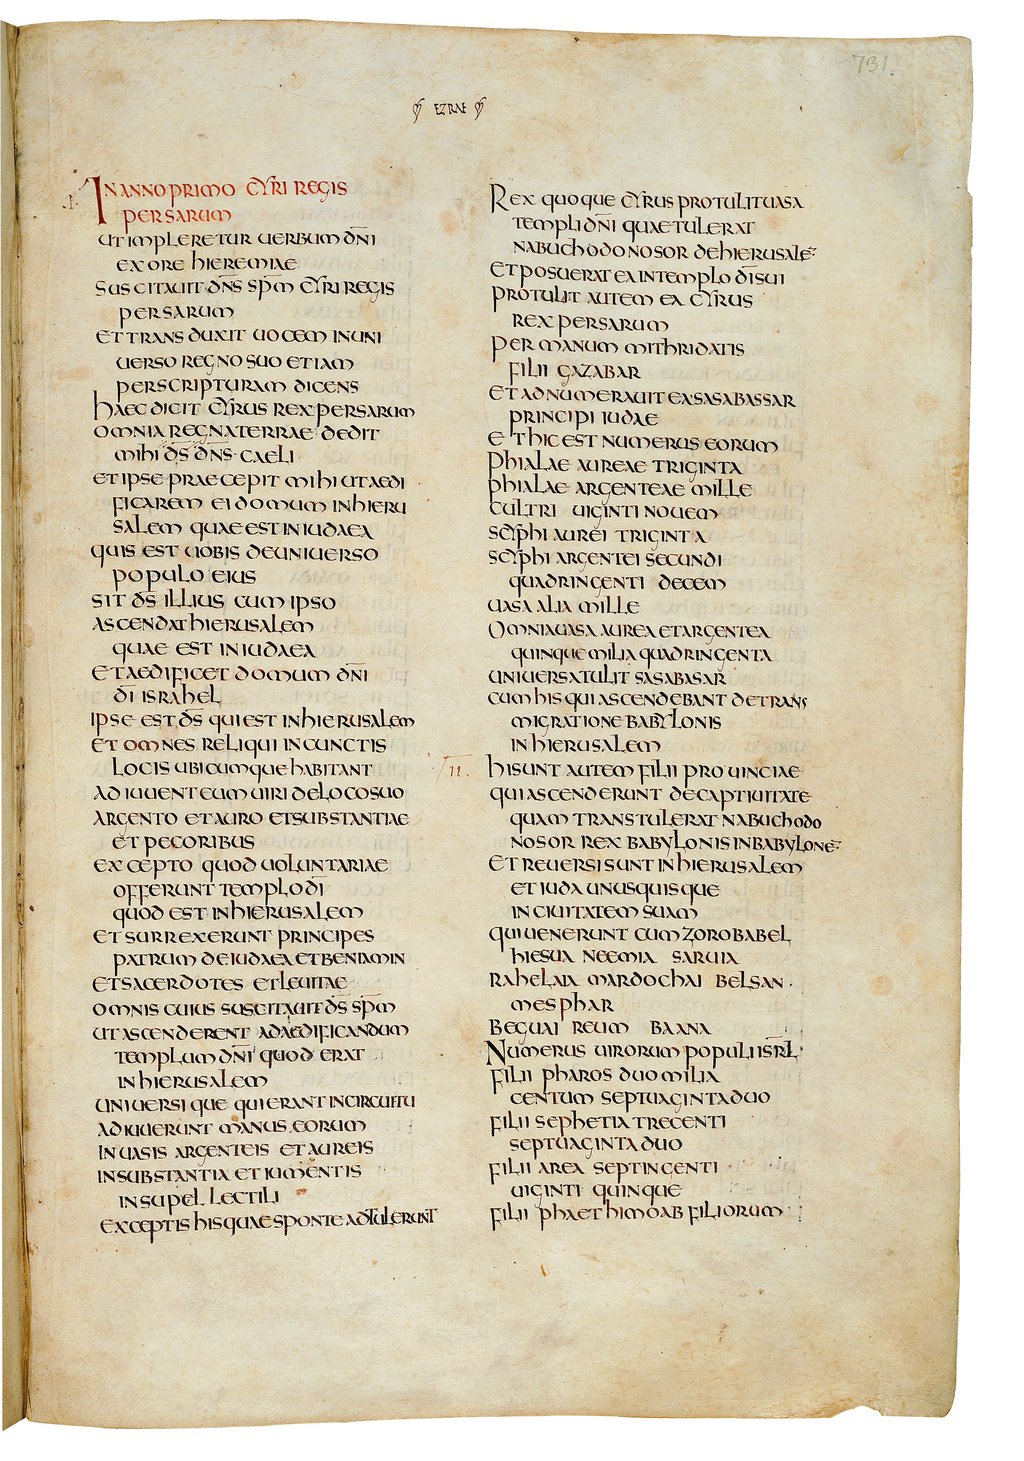 731.
EZRAE
IN ANNO PRIMO CYRI REGIS
PERSARUM
UT IMPLERETUR UERBUM DN̅I
EX ORE HIEREMIAE
SUSCITAUIT DN̅S SPM̅ CYRI REGIS
PERSARUM
ET TRANSDUXIT UOCEM IN UNI
UERSO REGNO SUO ETIAM
PER SCRIPTURAM DICENS
HAEC DICIT CYRUS REX PERSARUM
OMNIA REGNA TERRAE DEDIT
MIHI D̅S DN̅S CAELI
ET IPSE PRAECEPIT MIHI UT AEDI
FICAREM EI DOMUM IN HIERU
SALEM QUAE EST IN IUDAEA
QUIS EST UOBIS DE UNIUERSO
POPULO EIUS
SIT D̅S ILLIUS CUM IPSO
ASCENDAT HIERUSALEM
QUAE EST IN IUDAEA
ET AEDIFICET DOMUM DN̅I
D̅I ISRAHEL
IPSE EST D̅S QUI EST IN HIERUSALEM
ET OMNES RELIQUI IN CUNCTIS
LOCIS UBICUMQUE HABITANT
ADIUUENT EUM UIRI DE LOCO SUO
ARGENTO ET AURO ET SUBSTANTIAE
ET PECORIBUS
EXCEPTO QUOD UOLUNTARIAE
OFFERUNT TEMPLO D̅I
QUOD EST IN HIERUSALEM
ET SURREXERUNT PRINCIPES
PATRUM DE IUDAEA ET BENIAMIN
ET SACERDOTES ET LEUITAE
OMNIS CUIUS SUSCITAUIT D̅S SPM̅
UT ASCENDERENT AD AEDIFICANDUM
TEMPLUM DN̅I QUOD ERAT
IN HIERUSALEM
UNIUERSIQUE QUI ERANT IN CIRCUITU
ADIUUERUNT MANUS EORUM
IN UASIS ARGENTEIS ET AUREIS
IN SUBSTANTIA ET IUMENTIS
IN SUPELLECTILI
EXCEPTIS HIS QUAE SPONTE ADTULERUNT
REX QUOQUE CYRUS PROTULIT UASA
TEMPLI DN̅I QUAE TULERAT
NABUCHODONOSOR DE HIERUSALE̅
ET POSUERAT EA IN TEMPLO D̅I SUI
PROTULIT AUTEM EA CYRUS
REX PERSARUM
PER MANUM MITHRIDATIS
FILII GAZABAR
ET ADNUMERAUIT EA SASABASSAR
PRINCIPI IUDAE
ET HIC EST NUMERUS EORUM
PHIALAE AUREAE TRIGINTA
PHIALAE ARGENTEAE MILLE
CULTRI UIGINTI NOUEM
SCYPHI AUREI TRIGINTA
SCYPHI ARGENTEI SECUNDI
QUADRINGENTI DECEM
UASA ALIA MILLE
OMNIA UASA AUREA ET ARGENTEA
QUINQUE MILIA QUADRINGENTA
UNIUERSA TULIT SASABASAR
CUM HIS QUI ASCENDEBANT DE TRANS
MIGRATIONE BABYLONIS
IN HIERUSALEM
II. HI SUNT AUTEM FILII PROUINCIAE
QUI ASCENDERUNT DE CAPTIUITATE
QUAM TRANSTULERAT NABUCHODO
NOSOR REX BABYLONIS IN BABYLONE̅
ET REUERSI SUNT IN HIERUSALEM
ET IUDA UNUSQUISQUE
IN CIUITATEM SUAM
QUI UENERUNT CUM ZOROBABEL
HIESUA NEEMIA SARUIA
RAHELAIA MARDOCHAI BELSAN
MESPHAR
BEGUAI REUM BAANA
NUMERUS UIRORUM POPULI ISRL̅
FILII PHAROS DUO MILIA
CENTUM SEPTUAGINTA DUO
FILII SEPHETIA TRECENTI
SEPTUAGINTA DUO
FILII AREA SEPTINGENTI
UIGINTI QUINQUE
FILII PHAETHIMOAB FILIORUM